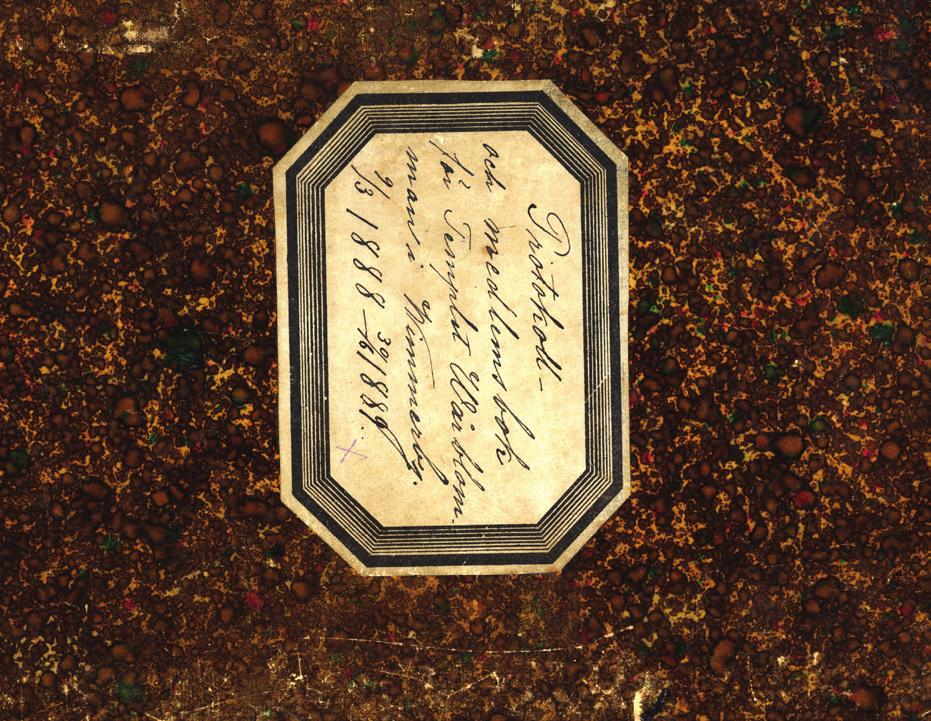 Protokoll-
och medlemsbok
för Templet Wårblom-
man i Wimmerby.
9/3 1888 – 30/6 1889.